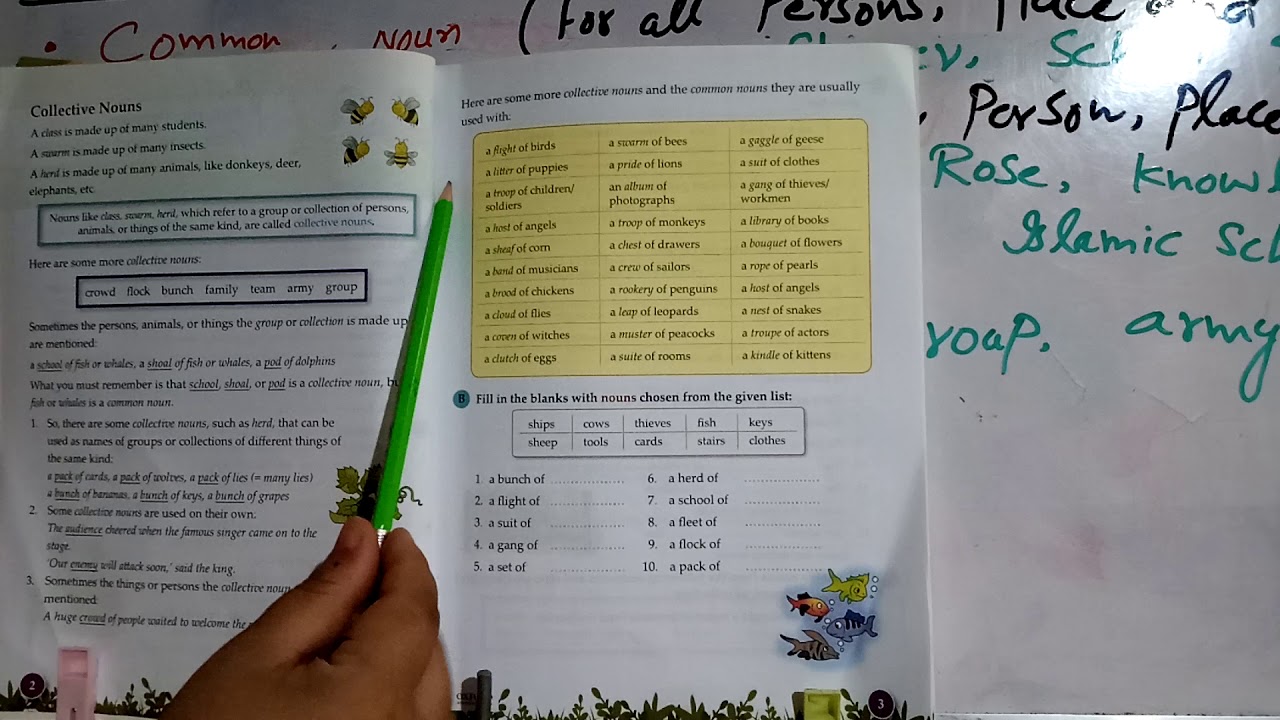 • Common Noun (For all Persons, Place and
Sc
Person, Place
Rose,
Islamic Sc
army
Collective Nouns
A class is made up of many students.
A swarm is made up of many insects.
A herd is made up of many animals, like donkeys, deer,
elephants, etc
Nouns like class, swarm, herd, which refer to a group or collection of persons,
animals, or things of the same kind, are called collective nouns.
Here are some more collective nouns:
crowd flock bunch family team army group
Sometimes the persons, animals, or things the group or collection is made up
are mentioned:
a school of fish or whales, a shoal of fish or whales, a pod of dolphins
What you must remember is that school, shoal, or pod is a collective noun,
fish or whales is a common noun.
1. So, there are some collective nouns, such as herd, that can be
used as names of groups or collections of different things of
the same kind:
a pack of cards, a pack of wolves, a pack of lies (= many lies)
a bunch of bananas, a bunch of keys, a bunch of grapes
2. Some collective nouns are used on their own.
The audience cheered when the famous singer came on to the
stage.
'Our enemy will attack soon,' said the king.
3. Sometimes the things or persons the collective noun
mentioned:
A huge crowd of people waited to welcome the
2
Here are some more collective nouns and the common nouns they are usually
used with:
a flight of birds a swarm of bees a gaggle of geese
a litter of puppies a pride of lions a suit of clothes
a troop of children/ an album of a gang of thieves/
soldiers photographs workmen
a host of angels a troop of monkeys a library of books
a sheaf of corn a chest of drawers a bouquet of flowers
a band of musicians a crew of sailors a rope of pearls
a brood of chickens a rookery of penguins a host of angels
a cloud of flies a leap of leopards a nest of snakes
a coven of witches a muster of peacocks a troupe of actors
a clutch of eggs a suite of rooms a kindle of kittens
B Fill in the blanks with nouns chosen from the given list:
ships cows thieves fish keys
sheep tools cards stairs clothes
1. a bunch of .................. 6. a herd of ..................
2. a flight of .................. 7. a school of ..................
3. a suit of .................. 8. a fleet of ..................
4. a gang of .................. 9. a flock of ..................
5. a set of .................. 10. a pack of ..................
3